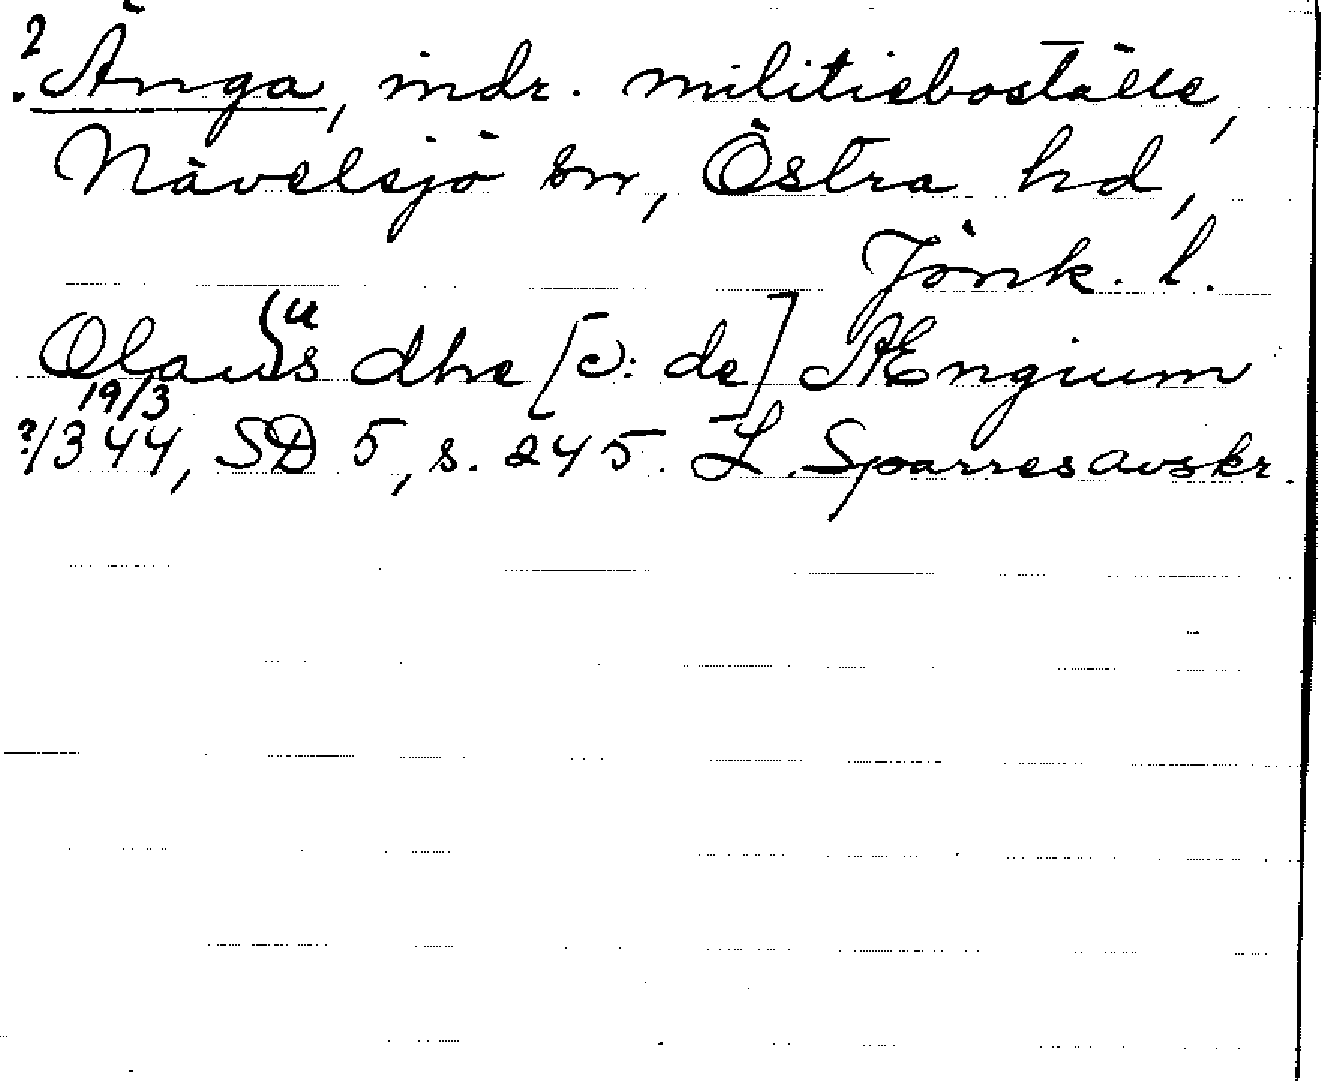 ? Änga, indr. militieboställe,
Nävelsjö sn, Östra hd,
Jönk. l.
Olauus dhe [ɔ: de] Ængium
19/3
?/3 44, SD 5, s. 245. L. Sparres avskr.